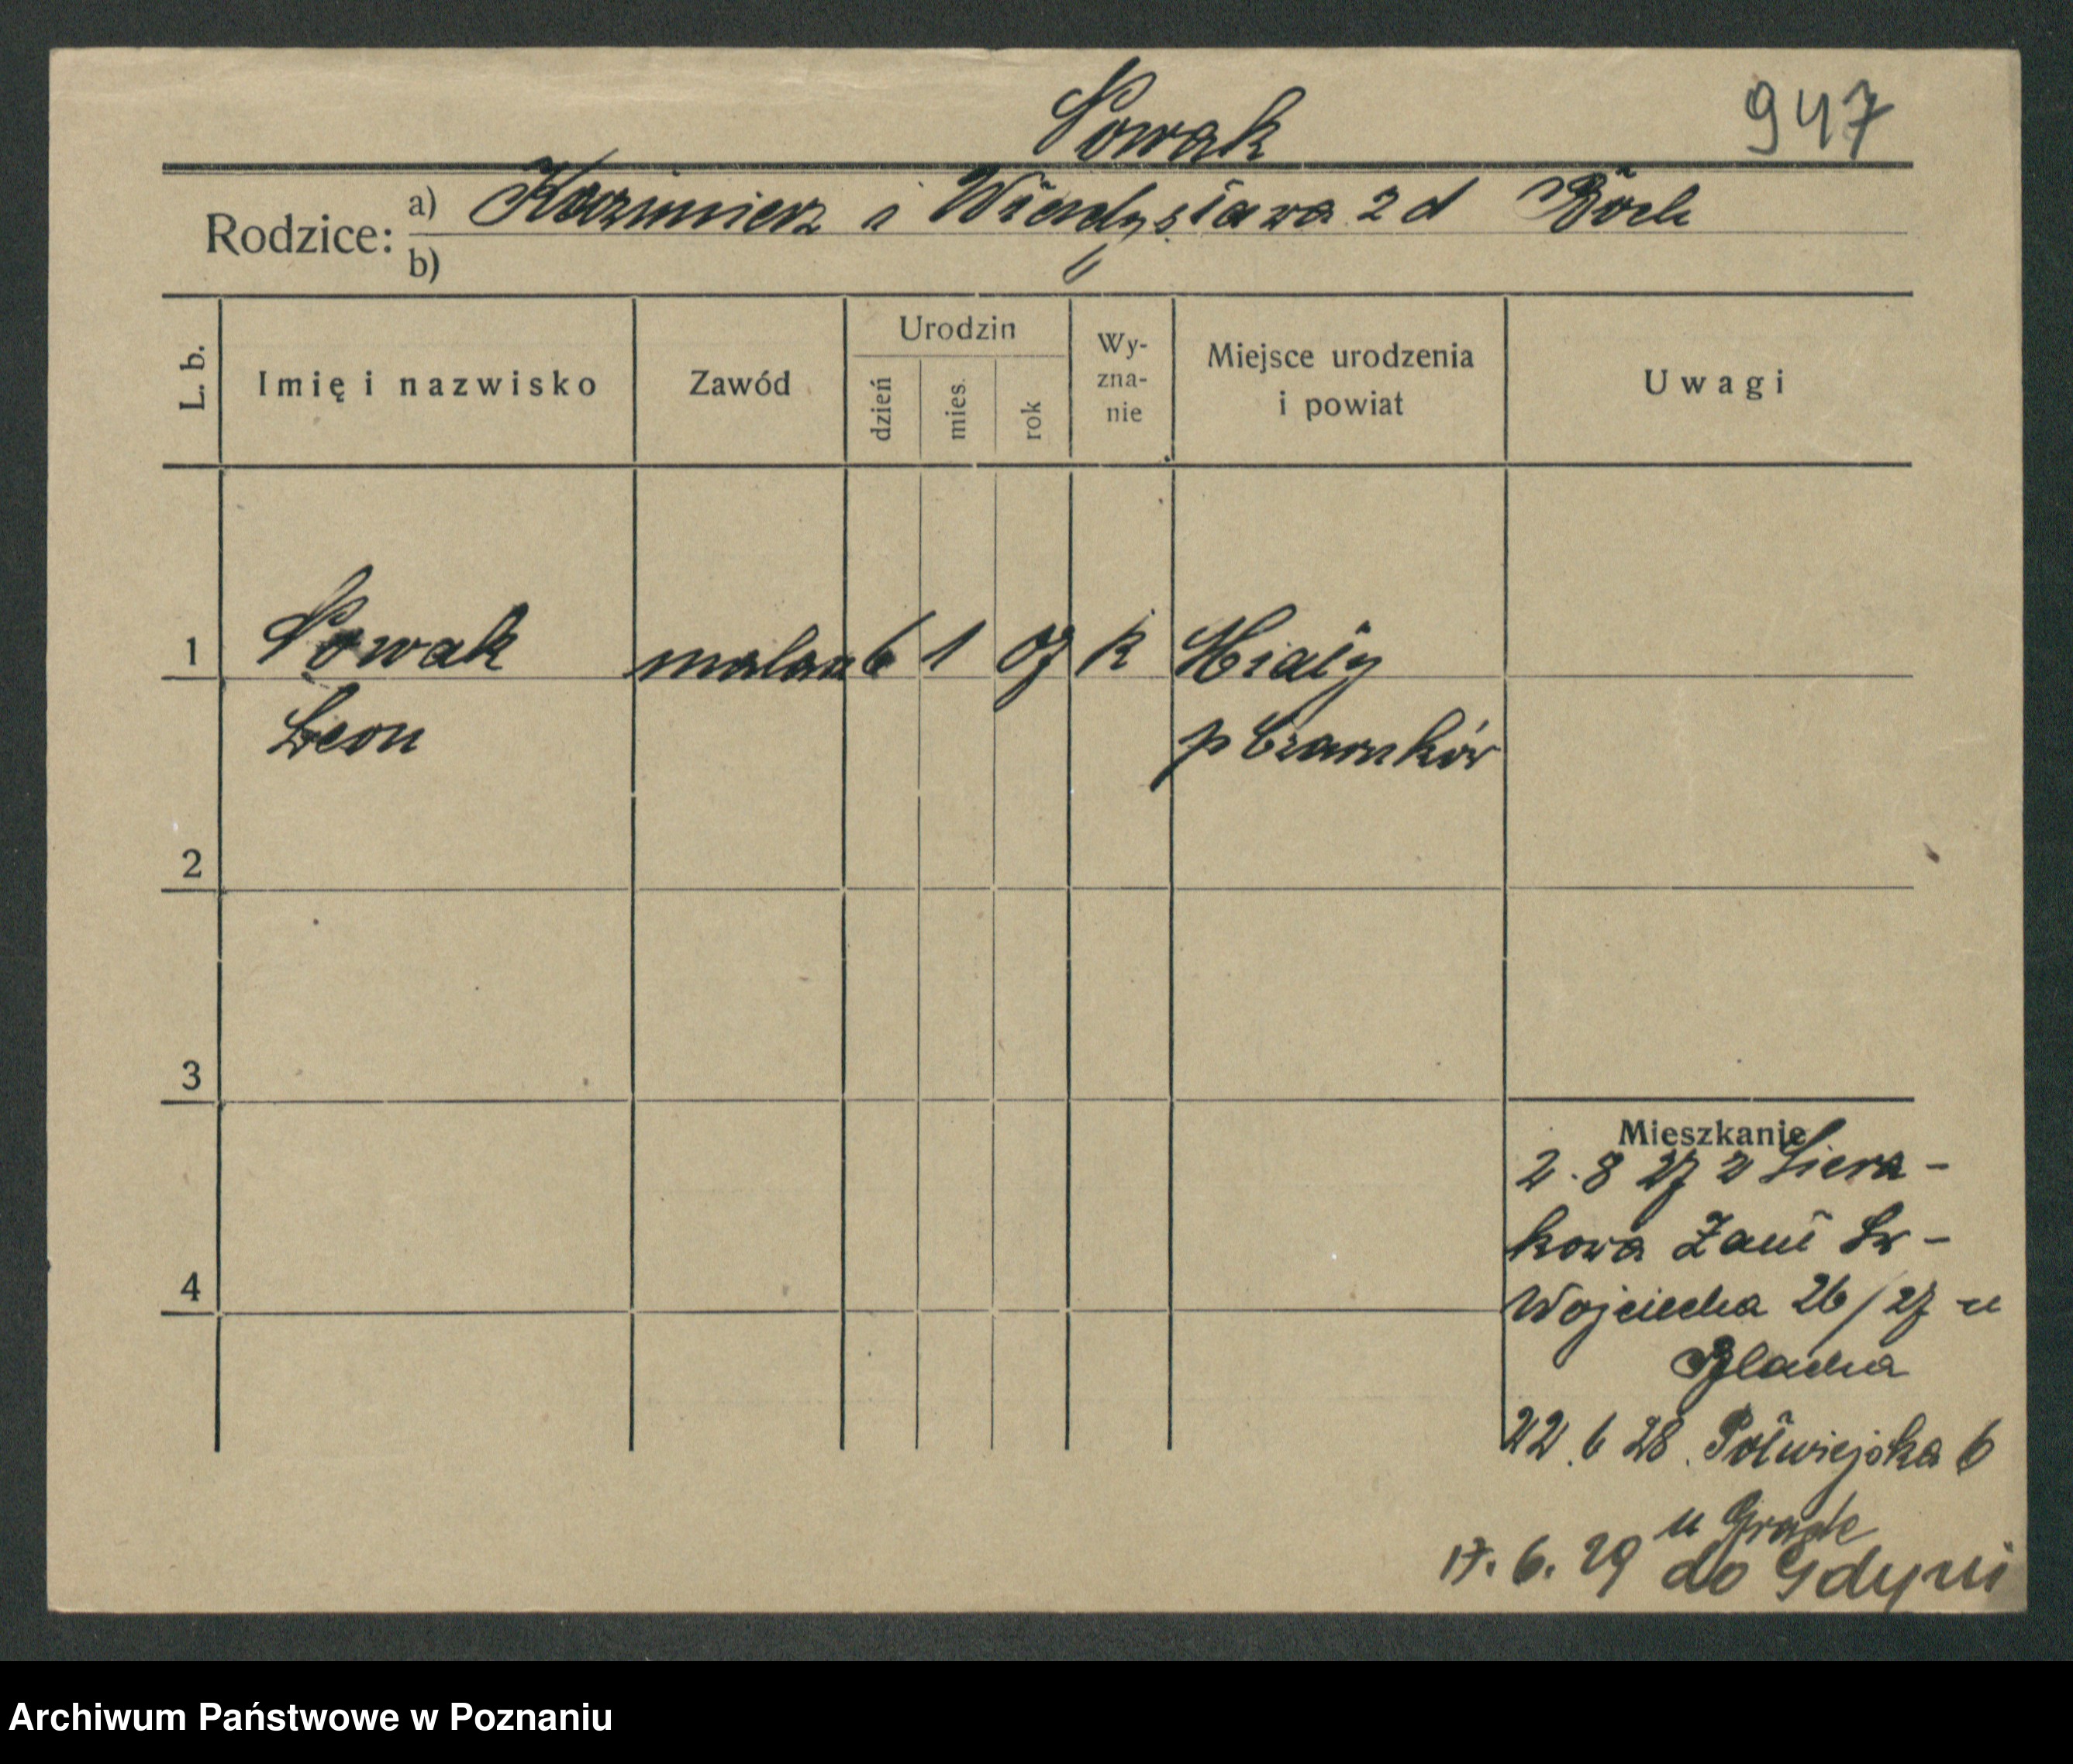 Sowak
947
Rodzice: a) Kazimierz i Władysława z d Böch
b)
L. b.
Imię i nazwisko
Zawód
Urodzin
dzień
mies.
rok
Wy-
zna-
nie
Miejsce urodzenia
i powiat
Uwagi
1 Sowak malarz 6 1 07 k Hiały
Leon p Czarnków
2
3
4
Mieszkanie
2.8 27 z Siera-
kowa Zam Św-
Wojciecha 26/27 u
Blacha
22.6 28. Półwiejska 6
u Grade
17.6.29 do Gdyni
Archiwum Państwowe w Poznaniu